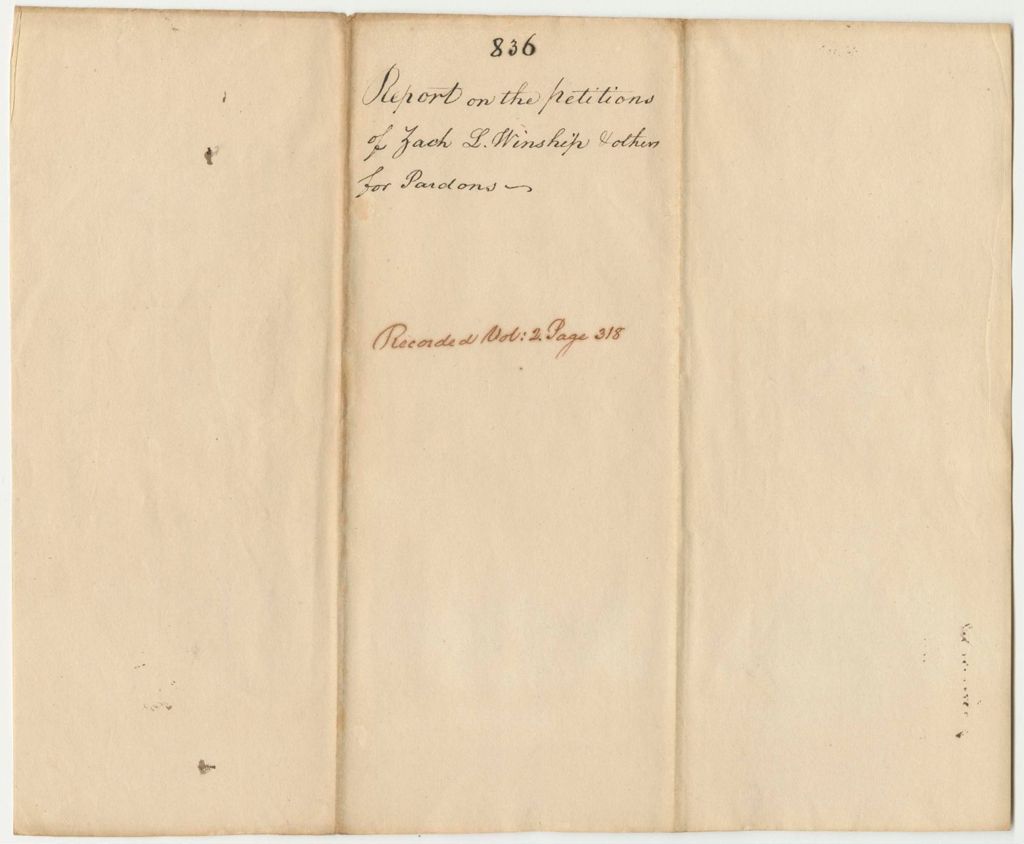 836
Report on the petitions
of Zach L. Winship & others
for Pardons
Recorded Vol: 2. Page 318